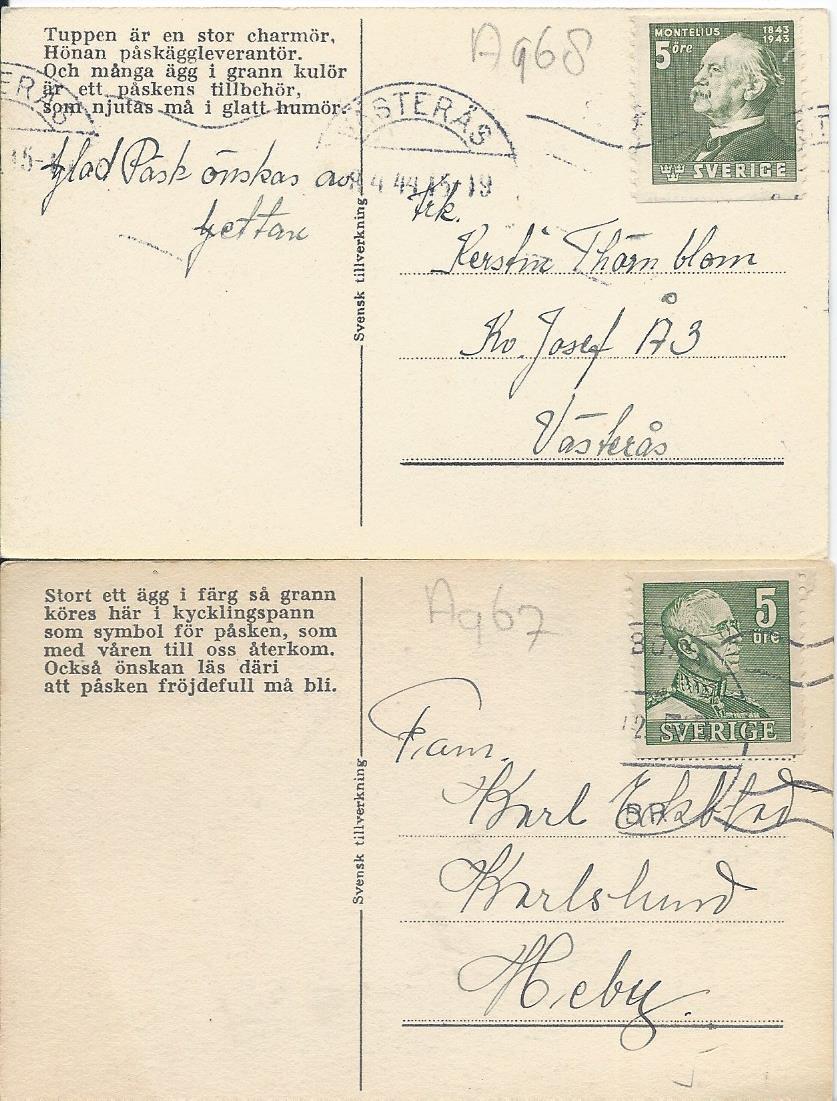 Tuppen är en stor charmör,
Hönan påskäggleverantör.
Och många ägg i grann kulör
är ett påskens tillbehör,
som njutas må i glatt humör.
Aq68
MONTELIUS 1843 1943
5 öre
SVERIGE
VÄSTERÅS
4 44 15-19
Glad Påsk önskas av
Svensk tillverkning
Frk.
Kerstin Thörnblom
Kv. Josef Å3
Västerås
Stort ett ägg i färg så grann
köres här i kycklingspann
som symbol för påsken, som
med våren till oss återkom.
Också önskan läs däri
att påsken fröjdefull må bli.
Aq67
5
öre
SVERIGE
Svensk tillverkning
Fam.
Karl
Karlslund
Heby.